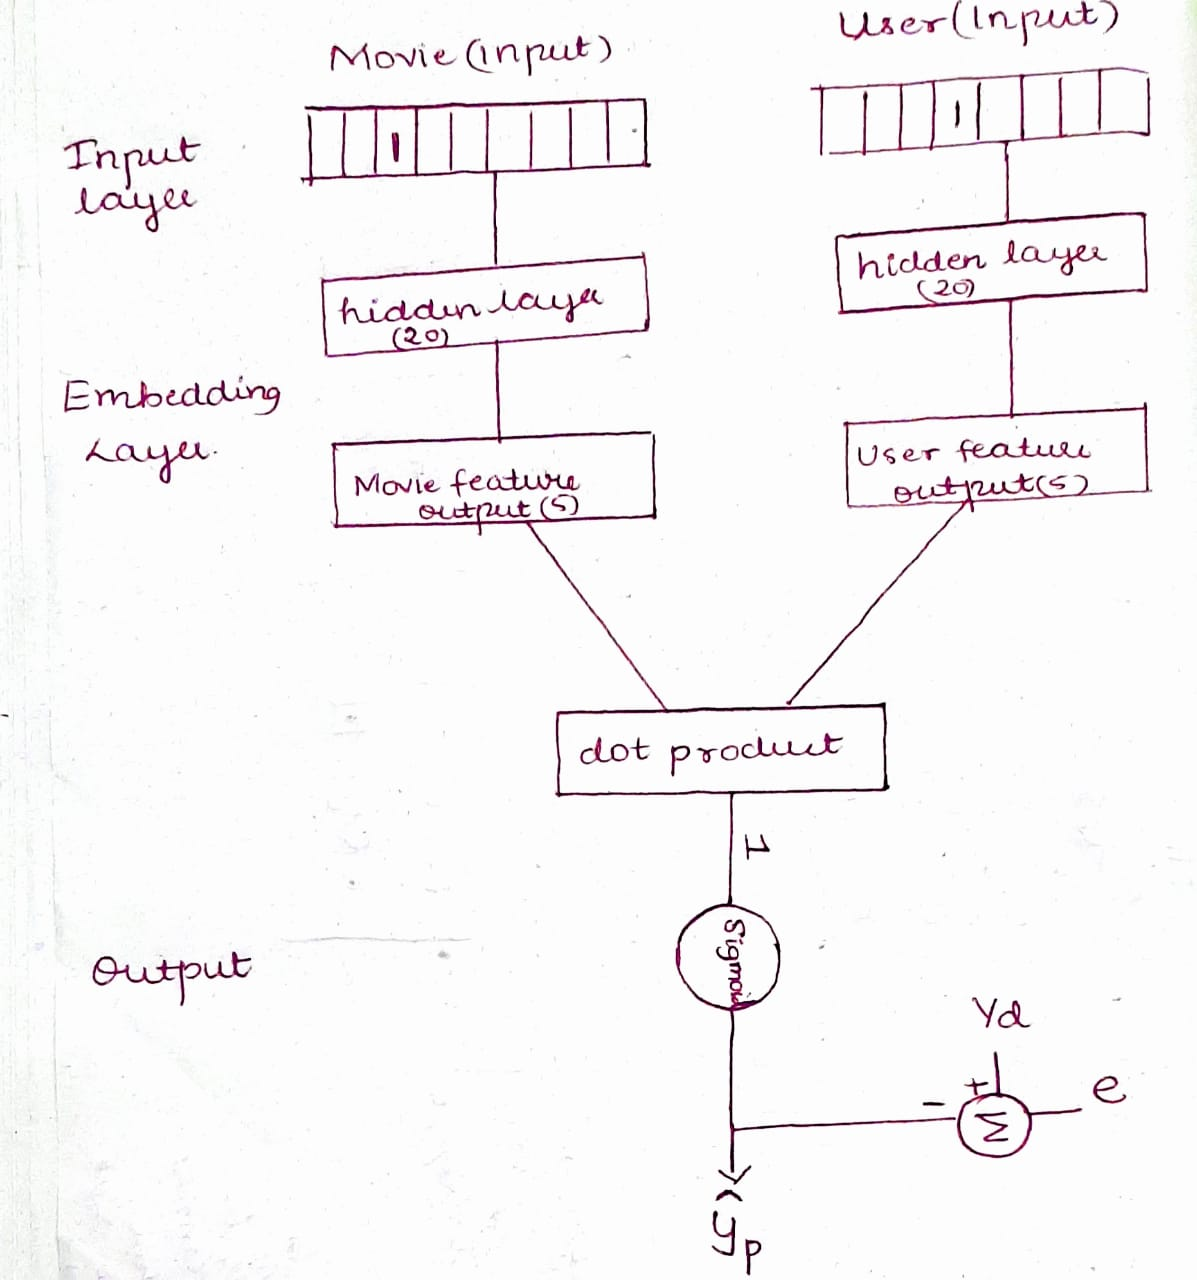 Movie (input)
User (Input)
1
1
Input
layer
hidden layer
(20)
hidden layer
(20)
Embedding
Layer.
Movie feature
output (5)
User feature
output (5)
dot product
1
Sigmoid
Output
Yd
+
-
Σ
e
yp